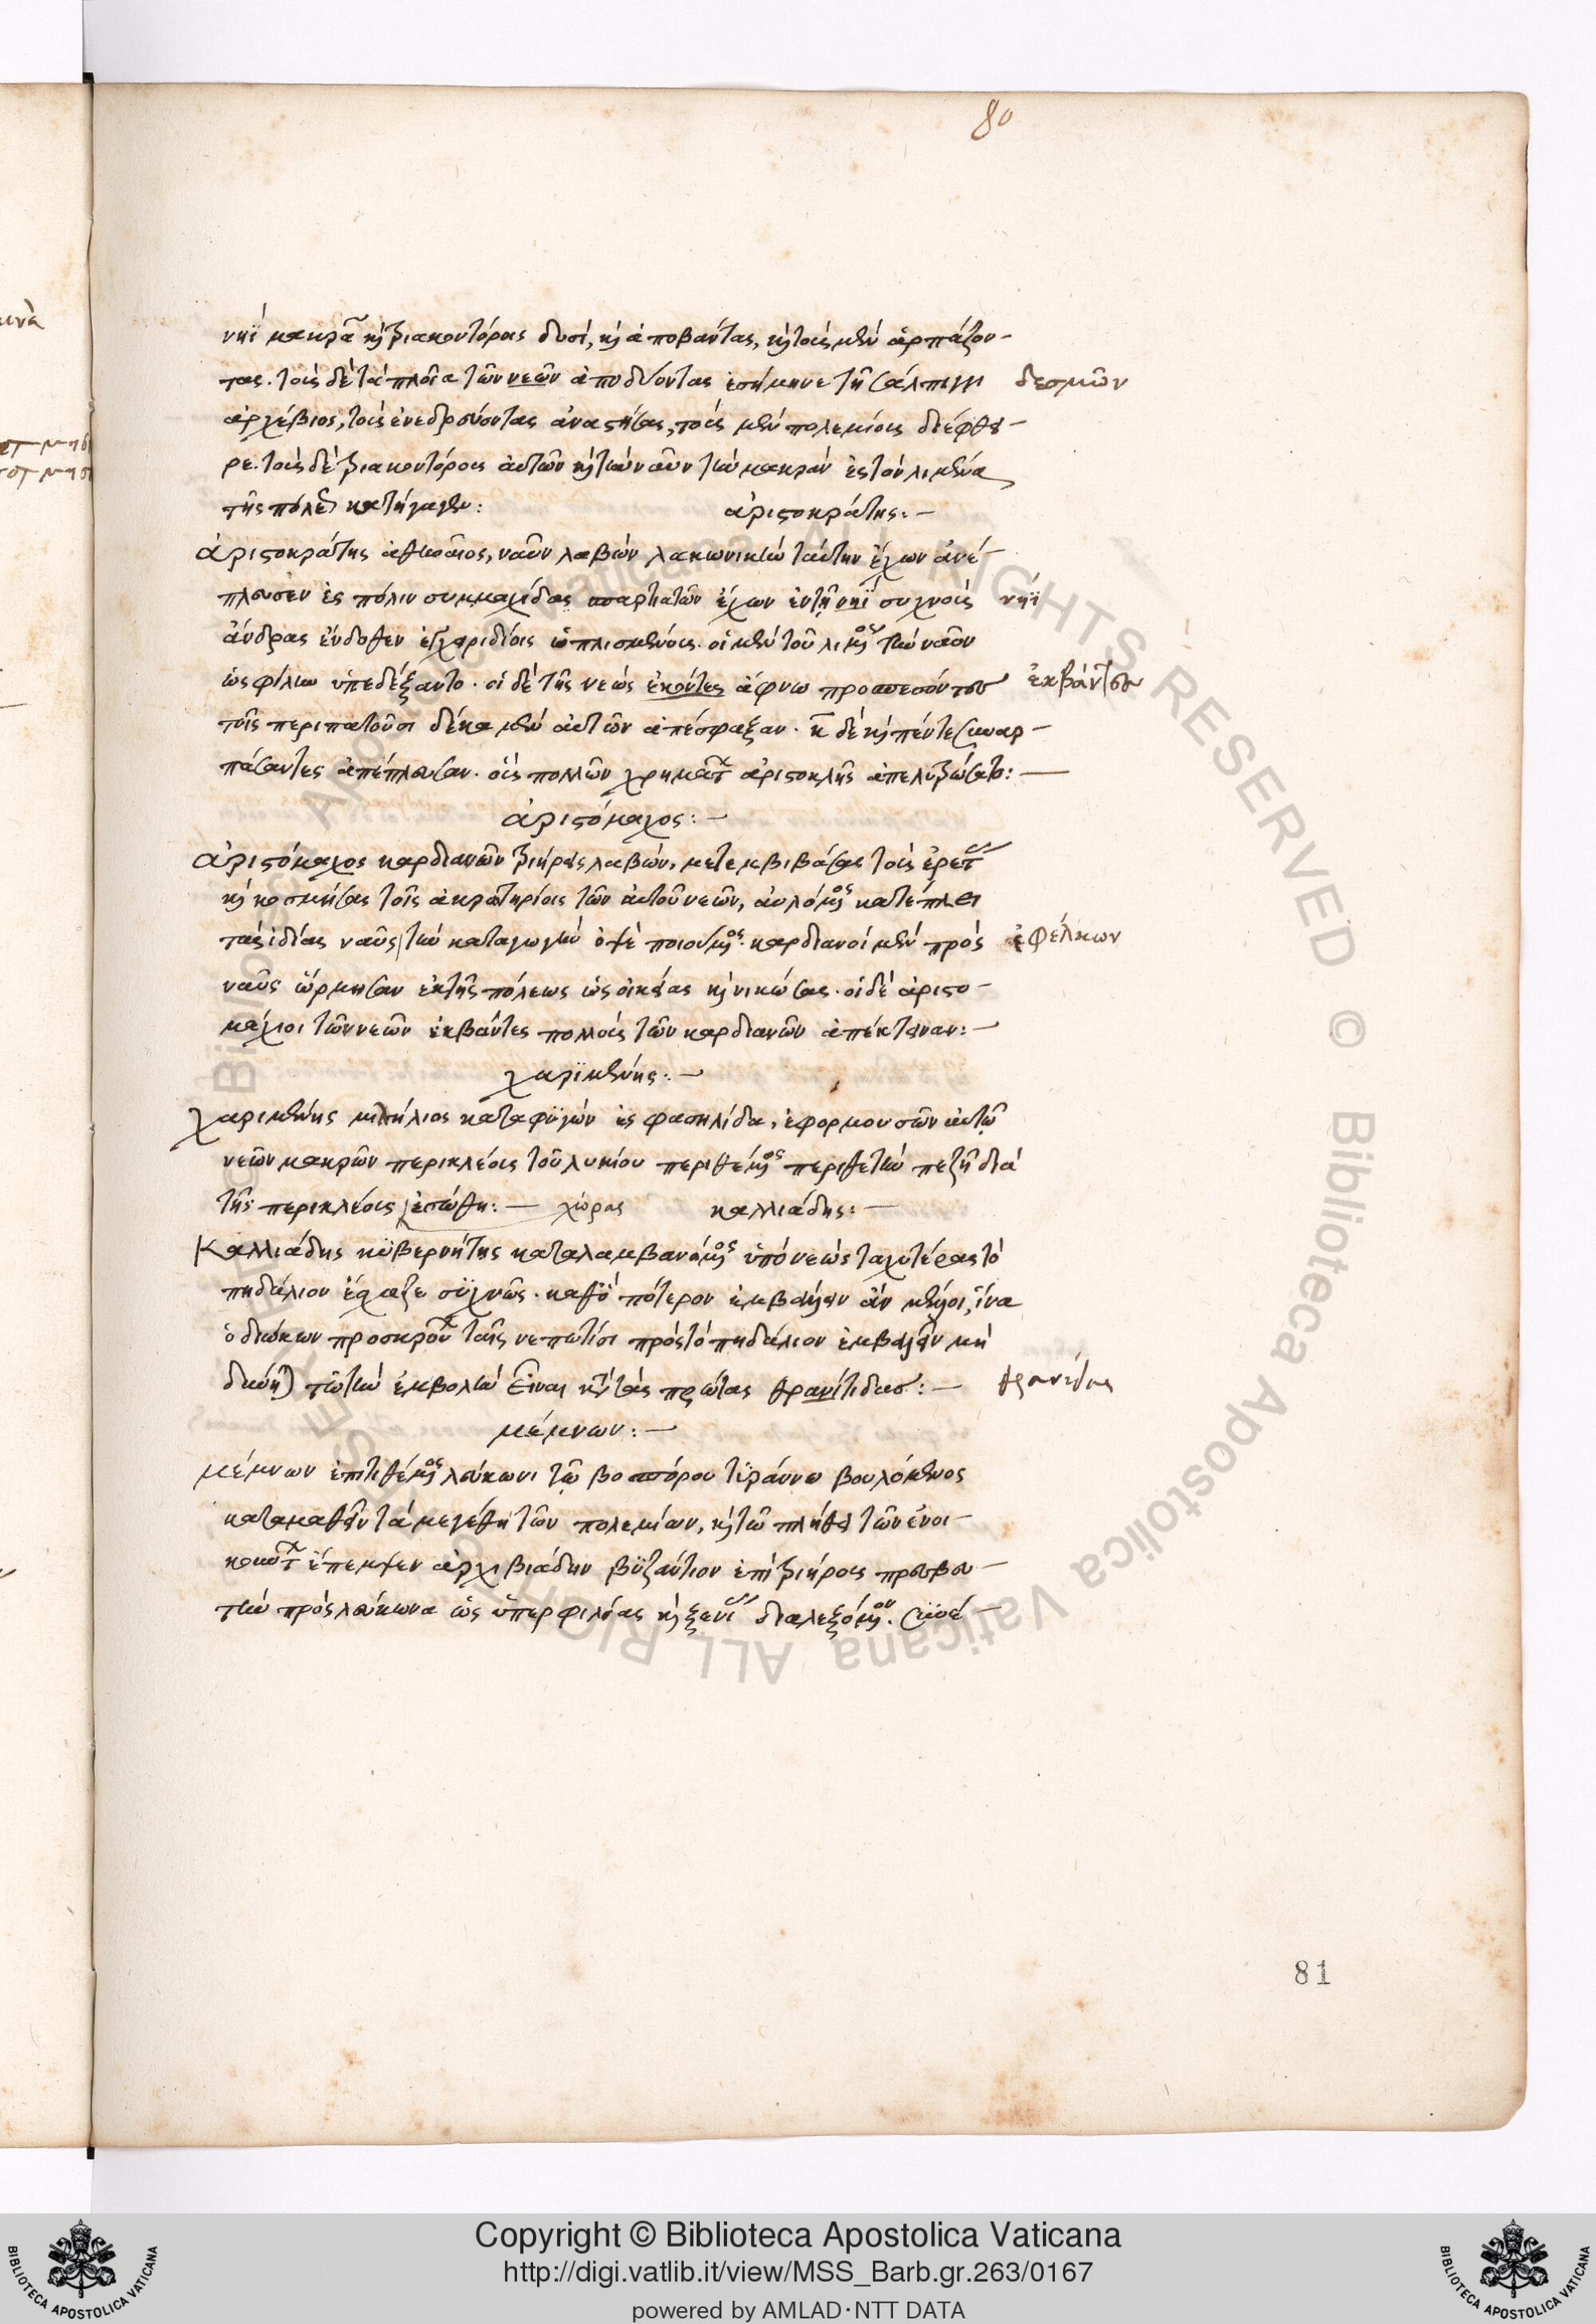 80
νηῒ μακρᾶ κὶ τριακοντόροις δυσὶ, κὶ ἀποβάντας, κὶ τοὺς μὲν ἁρπάζον-
τας. τοὺς δὲ τὰ πλοῖα τῶν νεῶν ἀποδύοντας ἐσήμηνε τῇ σάλπιγγι δεσμῶν
ἀρχέβιος, τοὺς ἐνεδρεύοντας ἀναστήσας, τοὺς μὲν πολεμίους διέφθει-
ρε. τοὺς δὲ τριακοντόρους αὐτῶν κὶ τὴν ναῦν τὴν μακρὰν ἐς τὸν λιμένα
τῆς πόλεως κατήγαγεν:
ἀριστοκράτης:-
ἀριστοκράτης ἀθηναῖος, ναῦν λαβὼν λακωνικὴν ταύτην ἔχων ἀνέ-
πλευσεν ἐς πόλιν συμμαχίδας σπαρτιατῶν ἔχων ἐν τῇ νηῒ συχνοὺς νηῒ
ἄνδρας ἔνδοθεν ἐγχειριδίοις ὡπλισμένους. οἱ μὲν τοῦ λιμένος τὴν ναῦν
ὡς φίλιον ὑπεδέξαντο. οἱ δὲ τῆς νεὼς ἑκόντες ἄφνω προσπεσόντες ἐκβάντες
τοῖς περιπατοῦσι δέκα μὲν αὐτῶν ἀπέσφαξαν. κ̄ δὲ κὶ πέντε συναρ-
πάσαντες ἀπέπλευσαν. οὓς πολλῶν χρημάτων ἀριστοκλῆς ἀπελυτρώσατο:-
ἀριστόμαχος:-
ἀριστόμαχος καρδιανῶν τριήρεις λαβὼν, μετεμβιβάσας τοὺς ἐρέτας
κὶ κοσμήσας τοῖς ἀκρωτηρίοις τῶν αὐτοῦ νεῶν, αὐλόμενος κατέπλει
τὰς ἰδίας ναῦς τὴν καταγωγὴν ὀψὲ ποιούμενος. καρδιανοὶ μὲν πρὸς ἐφέλκων
ναῦς ὥρμησαν ἐκ τῆς πόλεως ὡς οἰκείας κὶ νικώσας. οἱ δὲ ἀριστο-
μάχιοι τῶν νεῶν ἐκβάντες πολλοὺς τῶν καρδιανῶν ἀπέκτειναν:-
χαρϊμένης:-
χαριμένης μιλήσιος καταφϋγὼν ἐς φασηλίδα, ἐφορμουσῶν αὐτῷ
νεῶν μακρῶν περικλέους τοῦ λυκίου περιθέμενος περιθετὴν πεζῇ διὰ
τῆς περικλέους ἐσώθη:- χώρας
καλλιάδης:-
Καλλιάδης κϋβερνήτης καταλαμβανόμενος ὑπὸ νεὼς ταχυτέρας τὸ
πηδάλιον ἔσχαζε συχνῶς. καθ' ὃ πότερον ἐμβαλεῖν ἂν μέλλοι, ἵνα
ὁ διώκων προσκρούων ταῖς νεπωτίσι πρὸς τὸ πηδάλιον ἐμβαλεῖν μὴ
δύνηται τῶ τὴν ἐμβολὴν εἶναι κατὰ τὰς πρώτας θρανίτιδας:- θρανίδας
μέμνων:-
μέμνων ἐπιτιθέμενος λεύκωνι τῷ βοσπόρου τϋράννω βουλόμενος
καταμαθεῖν τὰ μεγέθη τῶν πολεμίων, κὶ τῶ πλήθει τῶν ἐνοι-
κούντων ἔπεμψεν ἀρχιβιάδην βϋζάντιον ἐπὶ τριήρους πρεσβευ-
τὴν πρὸς λεύκωνα ὡς ὑπερ φιλίας κὶ ξενίας διαλεξόμενον. συνέ-
81
Copyright © Biblioteca Apostolica Vaticana
http://digi.vatlib.it/view/MSS_Barb.gr.263/0167
powered by AMLAD·NTT DATA